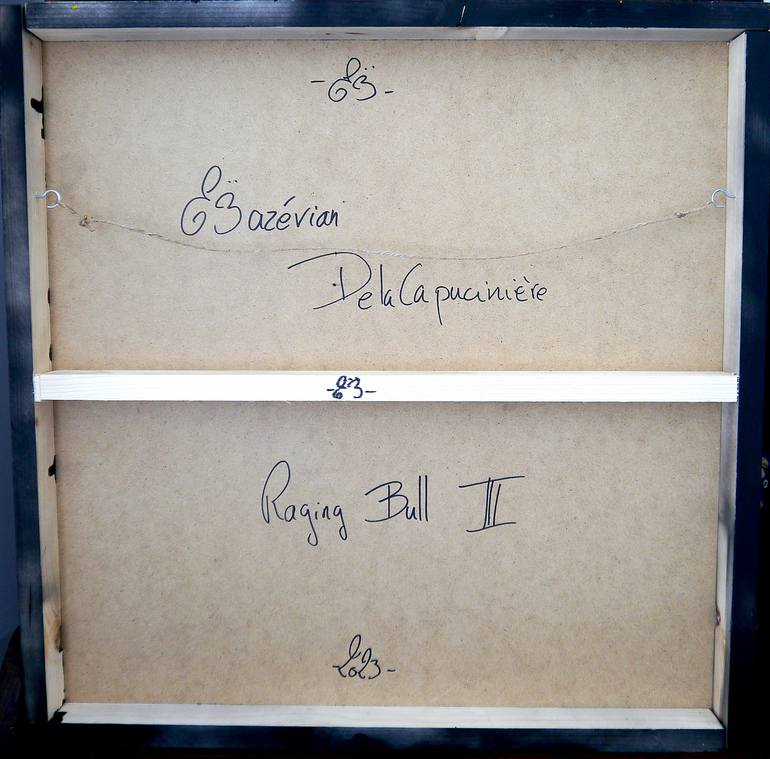 Bazévian
DelaCapucinière
Raging Bull III
2023-